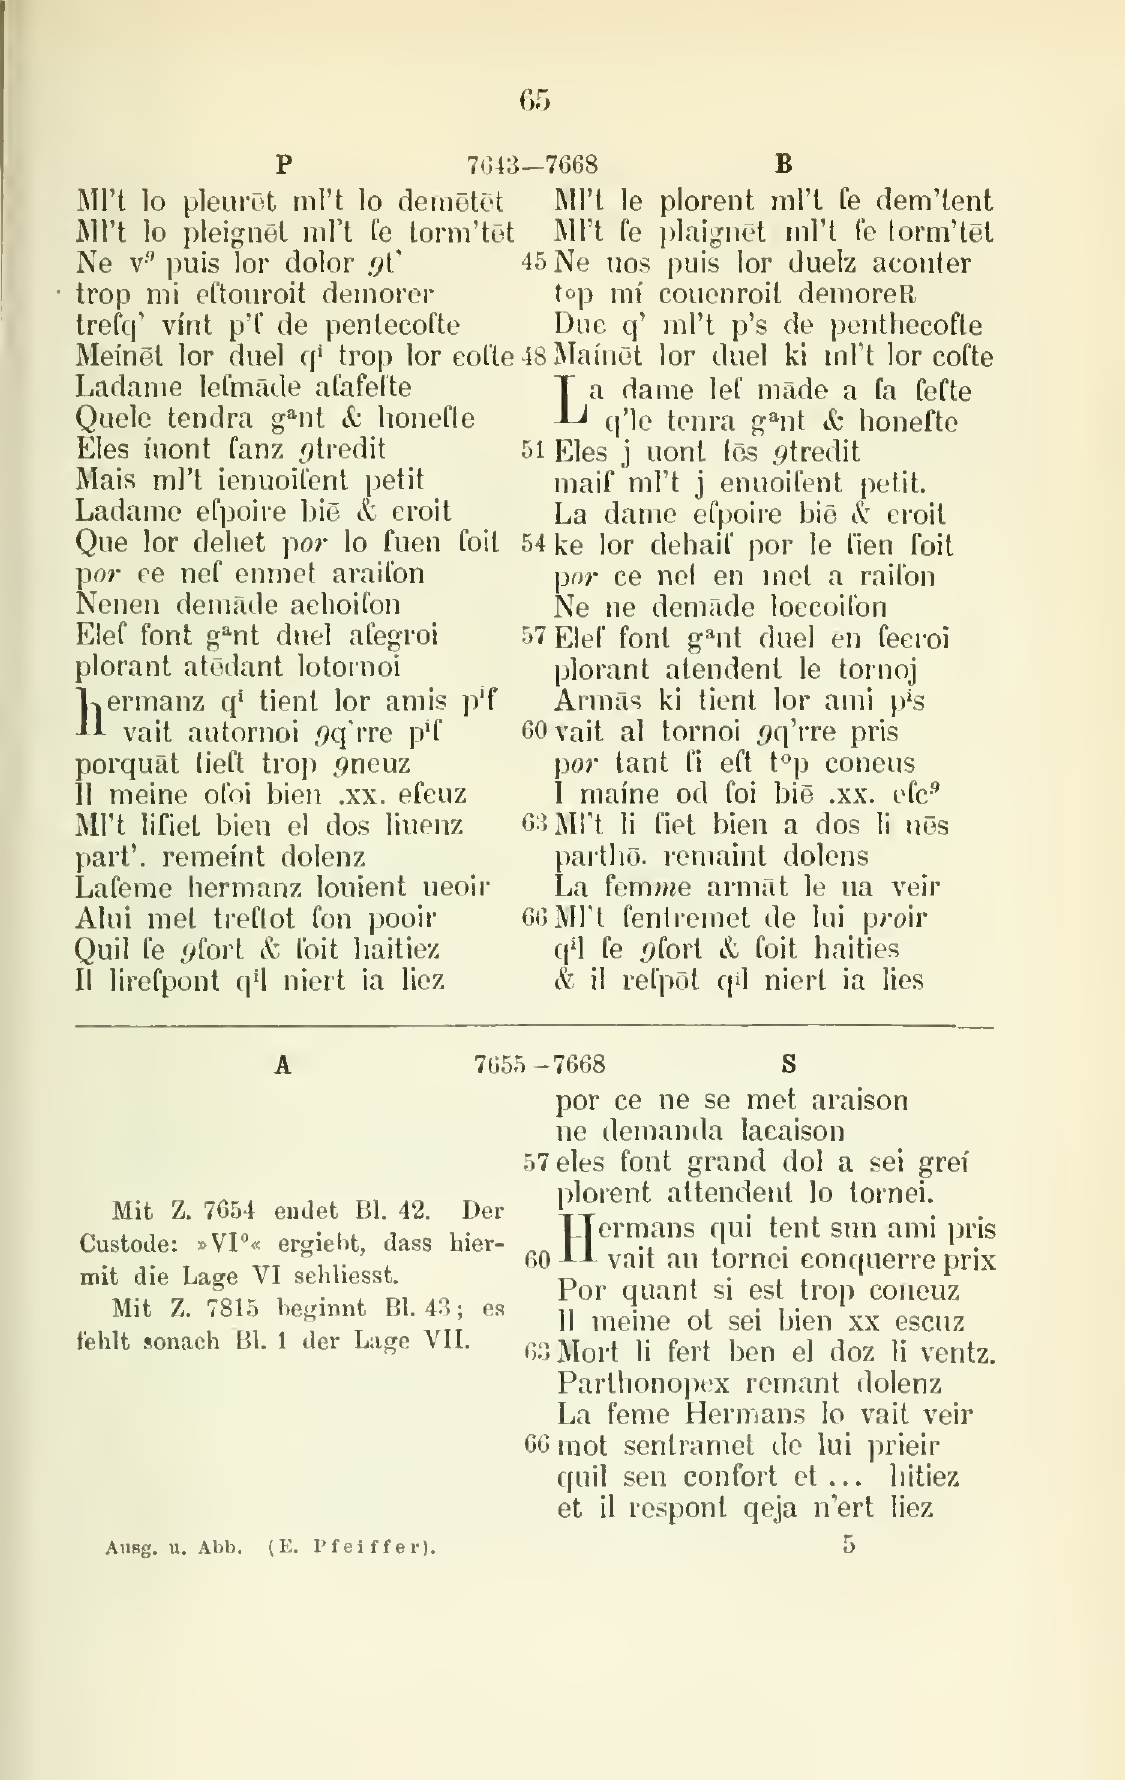 65
P 7643—7668 B
Ml’t lo pleurēt ml’t lo demētēt
Ml’t lo pleignēt ml’t ſe torm’tēt
Ne vꝰ puis lor dolor ꝯt’
trop mi eſtouroit demorer
treſq’ vínt p’ſ de pentecoſte
Meínēt lor duel qⁱ trop lor coſte
Ladame leſmāde aſafeſte
Quele tendra gᵃnt & honeſte
Eles íuont ſanz ꝯtredit
Mais ml’t ienuoiſent petit
Ladame eſpoire biē & croit
Que lor dehet por lo ſuen ſoit
por ce neſ enmet araiſon
Nenen demāde achoiſon
Eleſ font gᵃnt duel aſegroi
plorant atēdant lotornoi
hermanz qⁱ tient lor amis pⁱſ
vait autornoi ꝯq’rre pⁱſ
porquāt ſieſt trop ꝯneuz
Il meine oſoi bien .xx. eſcuz
Ml’t liſiet bien el dos liuenz
part’. remeínt dolenz
Lafeme hermanz louient ueoir
Alui met treſtot ſon pooir
Quil ſe ꝯfort & ſoit haitiez
Il lireſpont qⁱl niert ia liez
Ml’t le plorent ml’t ſe dem’tent
Ml’t ſe plaignēt ml’t ſe torm’tēt
45 Ne uos puis lor duelz aconter
tᵒp mí couenroit demoreR
Duc q’ ml’t p’s de penthecoſte
48 Maínēt lor duel ki ml’t lor coſte
La dame leſ māde a ſa feſte
q’le tenra gᵃnt & honeſte
51 Eles j uont tōs ꝯtredit
maiſ ml’t j enuoiſent petit.
La dame eſpoire biē & croit
54 ke lor dehaiſ por le ſien ſoit
por ce neſ en met a raiſon
Ne ne demāde loccoiſon
57 Eleſ font gᵃnt duel en ſecroi
plorant atendent le tornoj
Armās ki tient lor ami pⁱs
60 vait al tornoi ꝯq’rre pris
por tant ſi eſt tᵒp coneus
I maíne od ſoi biē .xx. eſcꝰ
63 Ml’t li ſiet bien a dos li uēs
parthō. remaint dolens
La femme armāt le ua veir
66 Ml’t ſentremet de lui proir
qⁱl ſe ꝯfort & ſoit haities
& il reſpōt qⁱl niert ia lies
A 7655–7668 S
Mit Z. 7654 endet Bl. 42. Der
Custode: »VI⁰« ergiebt, dass hier-
mit die Lage VI schliesst.
Mit Z. 7815 beginnt Bl. 43; es
fehlt sonach Bl. 1 der Lage VII.
por ce ne se met araison
ne demanda lacaison
57 eles font grand dol a sei greí
plorent attendent lo tornei.
Hermans qui tent sun ami pris
60 vait au tornei conquerre prix
Por quant si est trop coneuz
Il meine ot sei bien xx escuz
63 Mort li fert ben el doz li ventz.
Parthonopex remant dolenz
La feme Hermans lo vait veir
66 mot sentramet de lui prieir
quil sen confort et ... hitiez
et il respont qeja n’ert liez
Ausg. u. Abb. (E. Pfeiffer). 5